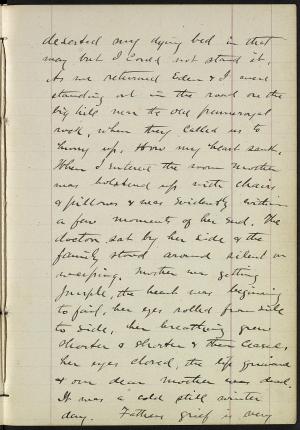 deserted my dying bed in that
way but I could not stand it.
As we returned Eden & I were
standing out in the road on the
big hill near the old pennyroyal
rock, when they called us to
hurry up. How my heart sank.
When I entered the room mother
was bolstered up with chairs
& pillows & was evidently within
a few moments of her end. The
doctor sat by her side & the
family stood around silent or
weeping. Mother was getting
purple, the heart was beginning
to fail, her eyes rolled from side
to side, her breathing grew
shorter & shorter & then ceased,
her eyes closed, the life
& our dear mother was dead.
It was a cold still winter
day. Fathers grief is very